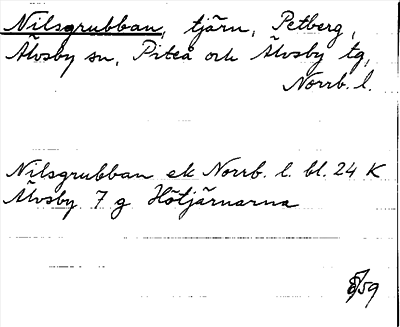 Nilsgrubban, tjärn, Petberg,
Älvsby sn, Piteå och Älvsby tg,
Norrb. l.
Nilsgrubban ek Norrb. l. bl. 24 K
Älvsby 7 g Hötjärnarna
/59